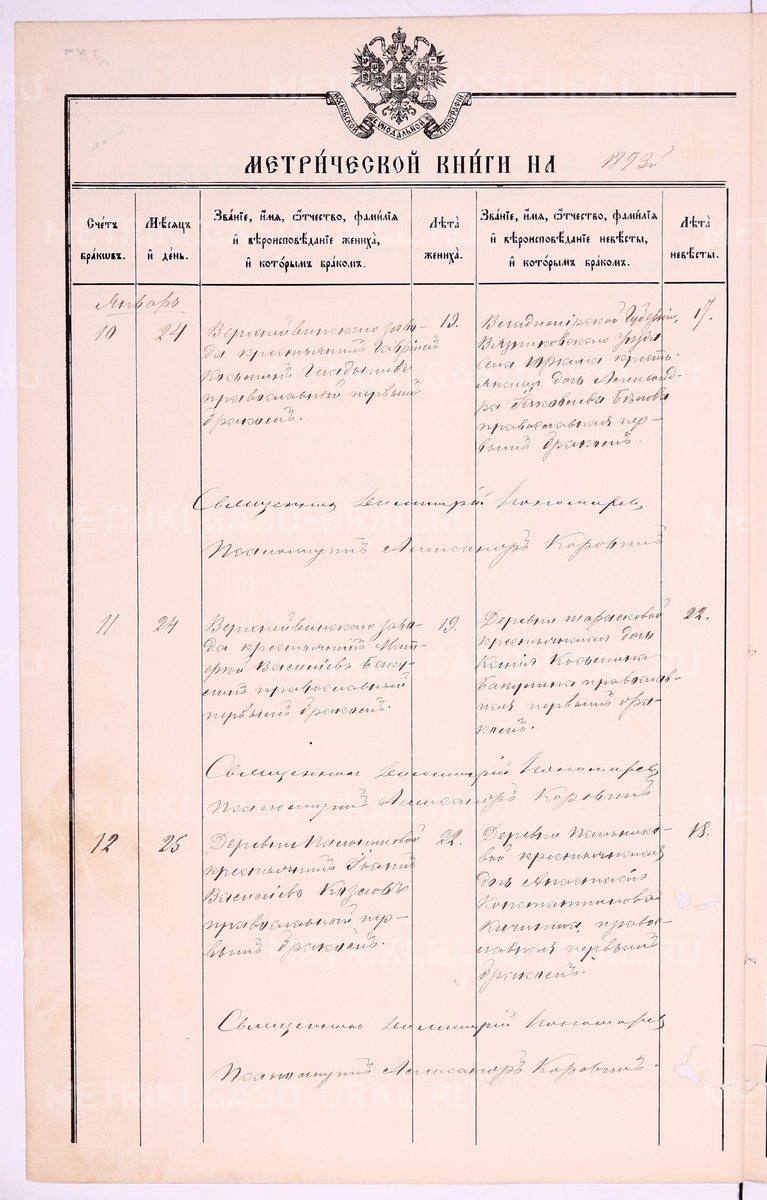 МОСКОВСКОЙ СѴНОДАЛЬНОЙ ТИПОГРАФІИ
МЕТРИ́ЧЕСКОЙ КНИ́ГИ НА 1893й
Сче́тъ бра́кѡвъ.
Мѣ́сяцъ и҆ де́нь.
Зва́нїе, и҆́мя, ѻ҆́тчество, фами́лїя
и҆ вѣроисповѣ́данїе жениха̀,
и҆ кото́рымъ бра́комъ.
Лѣ́та жениха̀.
Зва́нїе, и҆́мя, ѻ҆́тчество, фами́лїя
и҆ вѣроисповѣ́данїе невѣ́сты,
и҆ кото́рымъ бра́комъ.
Лѣ́та невѣ́сты.
Январь
10
24
Верхнейвинскаго заво-
да крестьянинъ Гавріилъ
Козьминъ
православный первымъ
бракомъ.
19.
Владимірской Губерніи,
Вязниковскаго уѣзда
села крестьянская дочь Александ-
ра Яковлева Бѣлова
православная пер-
вымъ бракомъ.
17.
Священникъ Димитрій Пономаревъ
Псаломщикъ Александръ Коровинъ
11
24
Верхнейвинскаго заво-
да крестьянинъ
Васильевъ Баку-
линъ православный
первымъ бракомъ.
19.
Деревни Тарасковой
крестьянская дочь
Ксенія Козьмина
Бакулина православ-
ная первымъ бра-
комъ.
22.
Священникъ Димитрій Пономаревъ
Псаломщикъ Александръ Коровинъ
12
25
Деревни Пальниковой
крестьянинъ Іоаннъ
Васильевъ Козловъ
православный пер-
вымъ бракомъ.
22.
Деревни Пальнико-
вой крестьянская
дочь Анастасія
Константинова
Кичигина, правос-
лавная первымъ
бракомъ.
18.
Священникъ Димитрій Пономаревъ
Псаломщикъ Александръ Коровинъ.
METRIKI.GASO-URAL.RU